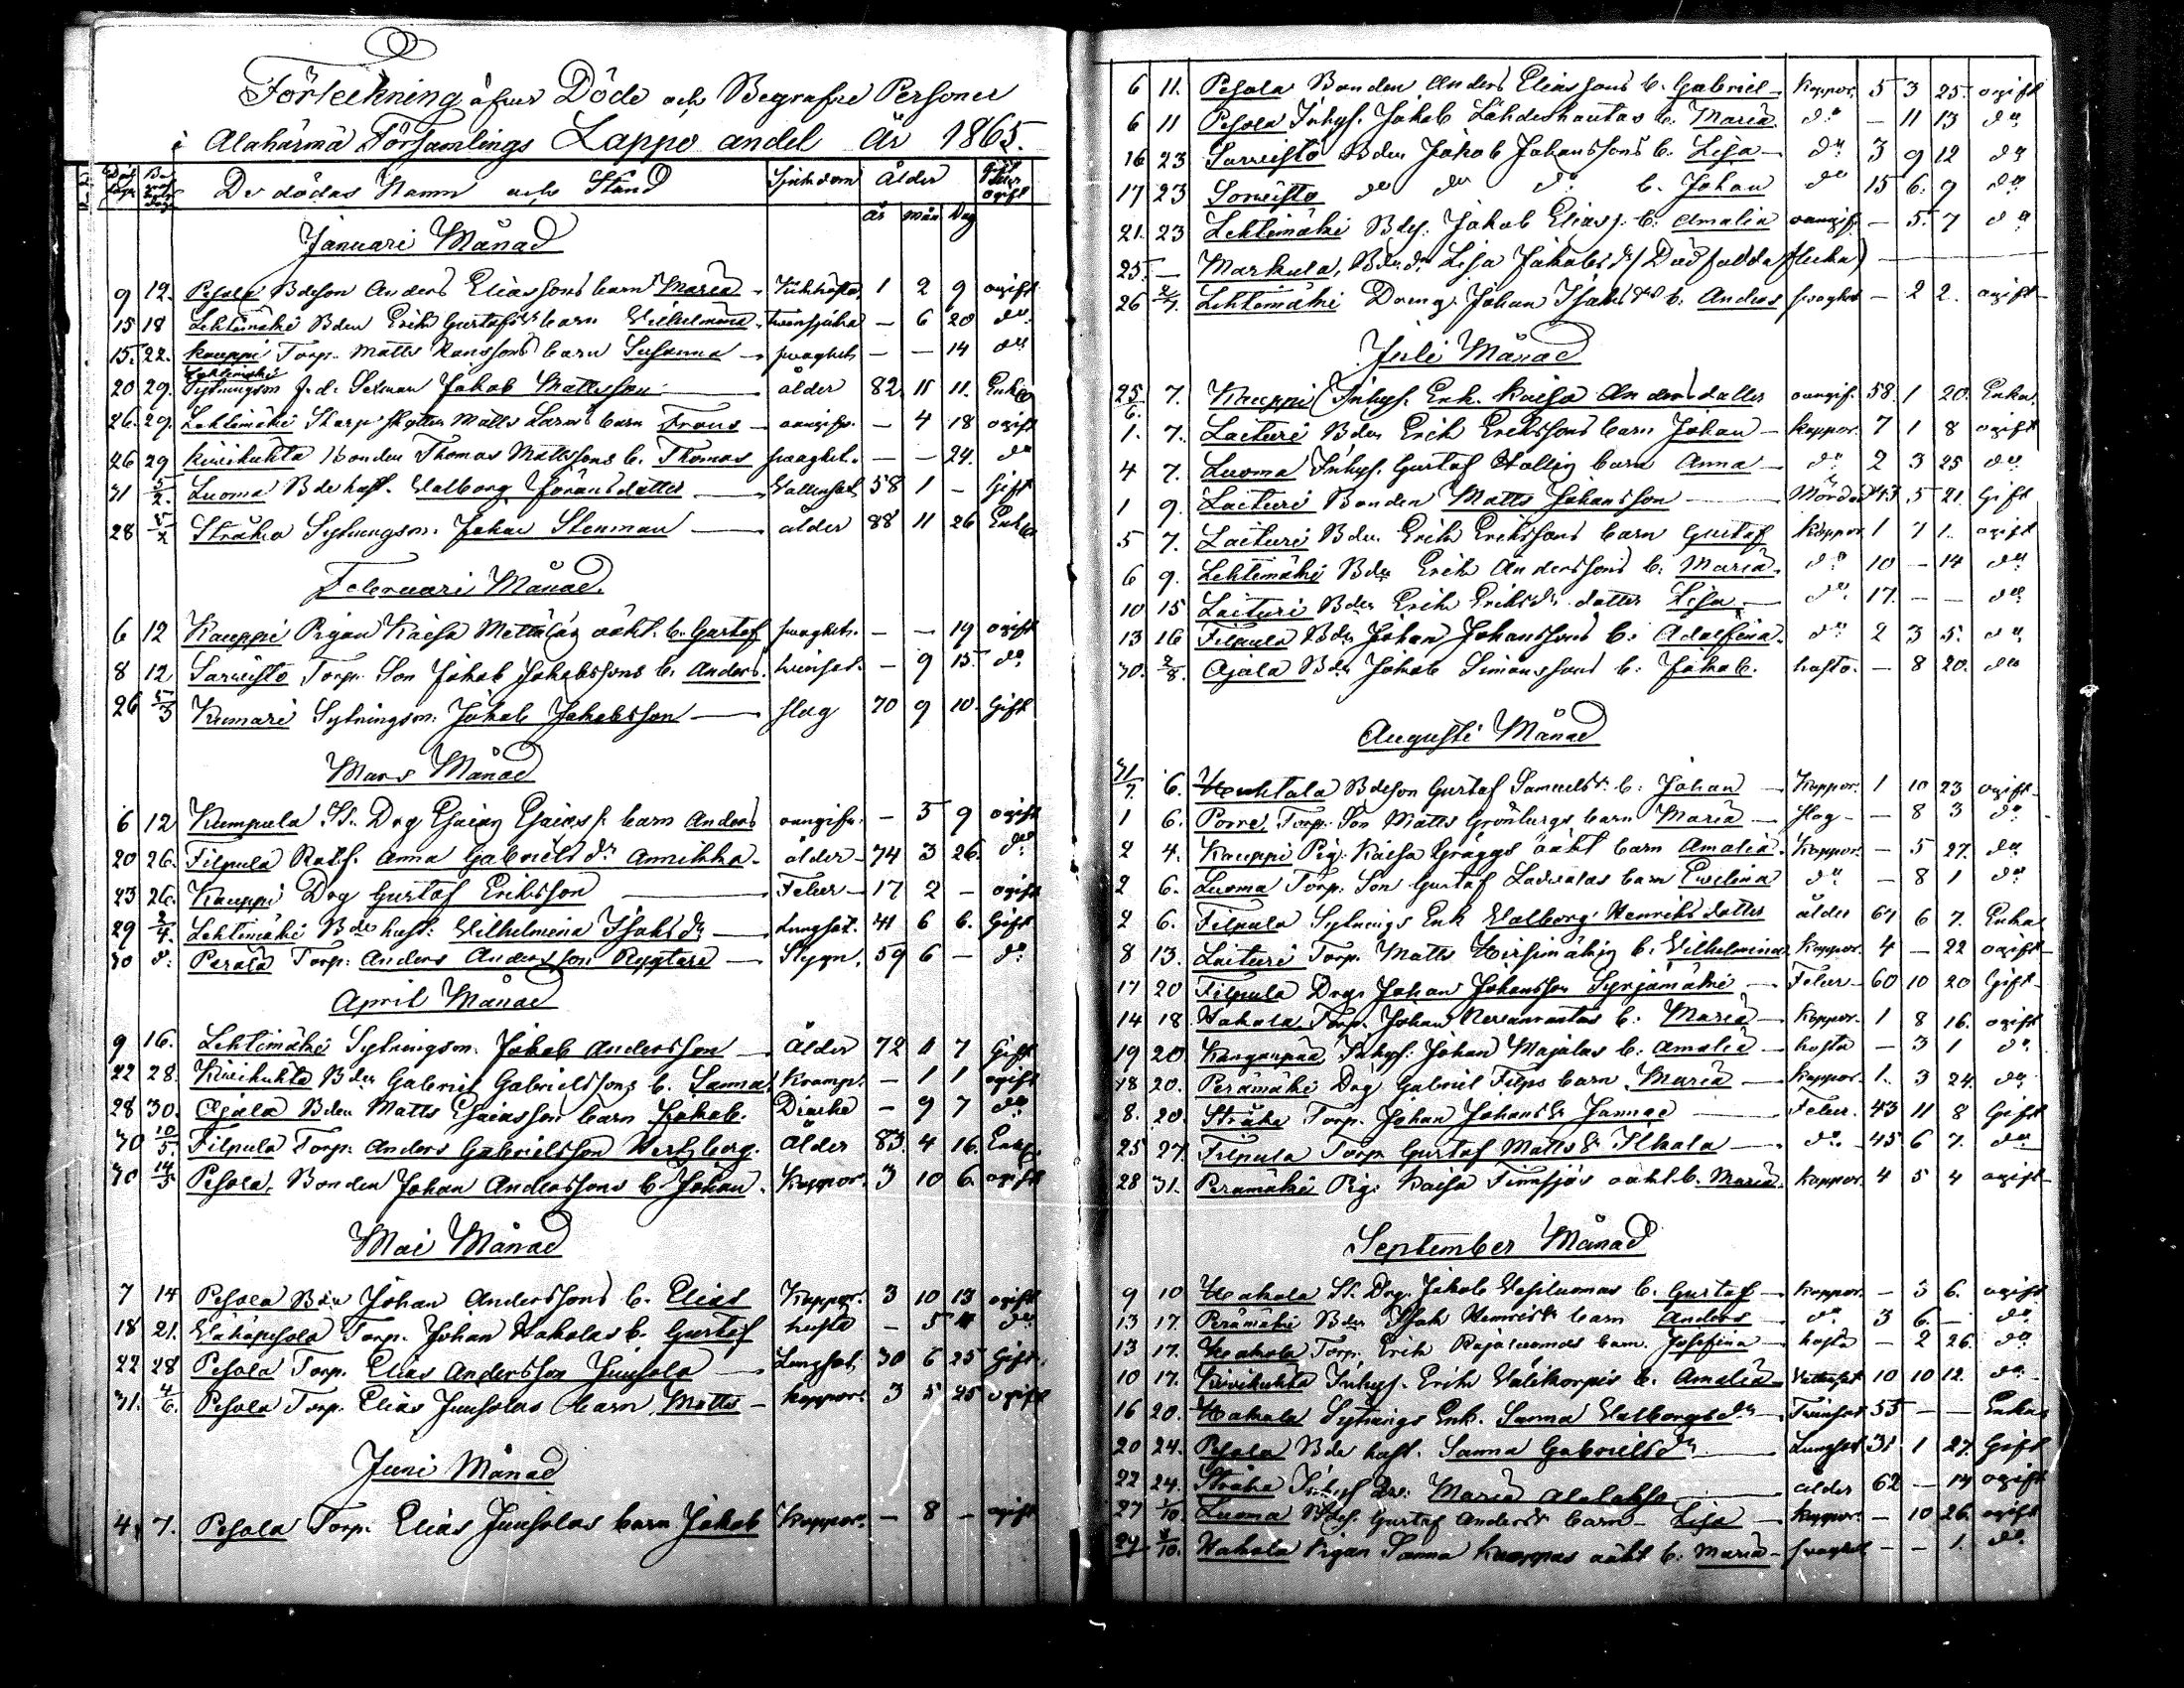 Förteckning öfver Döde och Begrafne Personer
i Alahärmä Församlings Lappo andel År 1865.
De dödas Namn och Stånd Sjukdom Ålder Gift eller ogift
år mån Dag
Januari Månad
9 12. Pesola Bdeson Anders Eliassons barn Maria Kikhosta 1 2 9 ogift
15 18 Lehtimäki Bden Erik Gustafss barn Wilhelmina - 6 20 do
15. 22. Kauppi Torp. Matts Hanssons barn Susanna svaghet - - 14 do
Lehtimäki
20 29. Sytningsm f.d. Jakob Mattsson ålder 82 11 11. Enkl.
26. 29. Lehtimäki Skarpskytten Matts Larss barn Frans oangifv. - 4 18 ogift
26 29 Kivikuhta Bonden Thomas Mattssons b. Thomas svaghet. - - 24. do
31 5/2. Luoma Bde hust. Walborg Göransdotter Vattensot 58 1 - Gift
28 5/2 Stråka Sytningsm. Johan Stenman ålder 88 11 26 Enkl
Februari Månad.
6 12 Kauppi Pigan Kaisa Mettälä oäkt. b. Gustaf svaghet. - - 19 ogift
8 12 Sarvisto Torp. Son Jakob Jakobssons b. Anders - 9 15. do
26 5/3 Kumari Sytningsm. Jakob Jakobsson slag 70 9 10. Gift
Mars Månad
6 12 Kumpula St. Drg Esaias Esaiass. barn Anders oangifv. - 5 9 ogift
20 26. Filpula Rotf. Anna Gabrielsdr Annikka ålder 74 3 26. do
23 26. Kauppi Drg Gustaf Eriksson Feber 17 2 - ogift
29 2/4. Lehtimäki Bde hust: Wilhelmina Isaksdr Lungsot. 41 6 6. Gift
30 do Perälä Torp: Anders Andersson Ryytäri Stygn. 59 6 - do
April Månad
9 16. Lehtimäki Sytningsm. Jakob Andersson Ålder 72 11 7 Gift
22 28. Kivikuhta Bden Gabriel Gabrielssons b. Sanna Kramp. - 1 1 ogift
28 30. Ojala Bden Matts Esaiasson barn Jakob. Diarhe - 9 7 do
30 10/5. Filpula Torp: Anders Gabrielsson Hertzberg. Ålder 83. 4 16. Enkl.
30 14/5 Pesola, Bonden Johan Anderssons b. Johan. Koppor. 3 10 6. ogift
Mai Månad
7 14 Pesola Bden Johan Anderssons b. Elias Koppor. 3 10 13 ogift
18 21. Wähäpesola Torp. Johan Hakolas b. Gustaf hosta - 5 11 do
22 28 Pesola Torp. Elias Andersson Juusola Lungsot. 30 6 25 Gift.
31. 4/6. Pesola Torp. Elias Juusolas barn Matts koppor. 3 5 25 ogift
Juni Månad
4 7. Pesola Torp. Elias Juusolas barn Jakob Koppor. - 8 - ogift
6 11. Pesola Bonden Anders Eliassons b. Gabriel Koppor. 5 3 25. ogift
6 11 Pesola Inhys. Jakob Lähdeshautas b. Maria do - 11 13 do
16 23 Sarvisto Bden Jakob Johanssons b. Lisa do 3 9 12 do
17 23 Sarvisto do do do b. Johan do 15 6. 9 do
21. 23 Lehtimäki Bdes. Jakob Eliass. b. Amalia oangif. - 5. 7 do
25. - Markula, Bdedr Lisa Jakobsdr (Dödfödda flicka)
26 2/7. Lehtimäki Dreng. Johan Isaks b. Anders svaghet - 2 2. ogift
Juli Månad
25/6. 7. Kauppi Inhys. Enk. Kaisa Andersdotter oangif. 58. 1 20. Enka.
1. 7. Laituri Bden Erik Erikssons barn Johan koppor. 7 1 8 ogift
4 7. Luoma Inhys. Gustaf barn Anna do 2 3 25 do
1 9. Laituri Bonden Matts Johansson Mördad 43. 5 21. Gift
5 7. Laituri Bden Erik Erikssons barn Gustaf Koppor 1 7 1. ogift
6 9. Lehtimäki Bden Erik Anderssons b. Maria. do 10 - 14 do
10 15 Laituri Bden Erik Eriks dotter Lisa do 17. - - do
13 16 Filpula Bden Johan Johanssons b. Adolfina. do 2 3 5. do
30. 2/8. Ojala Bden Jakob Simonssons b. Jakob. hosta. - 8 20. do
Augusti Månad
31/7. 6. Huhtala Bdeson Gustaf Samuels. b. Johan Koppor. 1 10 23 ogift
1 6. Porre, Torp. Son Matts Grönbergs barn Maria Slag - 8 3 do
2 4. Kauppi Pig. Kaisa Gräggs oäkt barn Amalia. Koppor. - 5 27. do
2 6. Luoma Torp. Son Gustaf barn Evelina do - 8 1 do
2 6. Filpula Sytnings Enk Walborg Henriksdotter ålder 67 6 7. Enka
8 13. Laituri Torp. Matts Hirsimäkis b. Wilhelmina Koppor. 4 - 22 ogift
17 20 Filpula Drg. Johan Johansson Syrjämäki Feber 60 10 20 Gift
14 18 Hakola Torp. Johan b. Maria Koppor. 1 8 16. ogift
19 20 Kangaspää, Inhys: Johan Majalas b. Amalia hosta - 3 1 do
18 20. Perämäki Drg Gabriel Filps barn Maria Koppor. 1. 3 24. do
8. 20. Stråka Torp. Johan Johanss Feber. 43 11 8 Gift
25 27. Filpula Torp. Gustaf Mattss Ilkala do 45 6 7. do
28 31. Perämäki Pig. Kaisa Finnsjös oäkt b. Maria. Koppor. 4 5 4 ogift
September Månad
9 10 Hakola St. Drg. Jakob b. Gustaf Koppor. - 3 6. ogift
13 17. Perämäki Bden Isak Henriks barn Anders do 3 6. - do
13 17. Hakola Torp. Erik Rajaluomas barn Josefina hosta - 2 26. do
10 17. Kivikuhta Inhys. Erik Välikorpis b. Amalia Vattusot 10 10 12. do
16 20. Hakola Sytnings Enk. Sanna Walborgsdr Tvinsot 55 - - Enka
20 24. Pesola Bde hust. Sanna Gabrielsdr Lungsot 31 1 27 Gift
22 24. Stråka Maria ålder 62 - 14 ogift
27 1/10. Luoma Gustaf Anderss barn Lisa Koppor. - 10 26. ogift
27 1/10. Hakola Pigan Sanna Knappas oäkt b. Maria svaghet - - 1. do